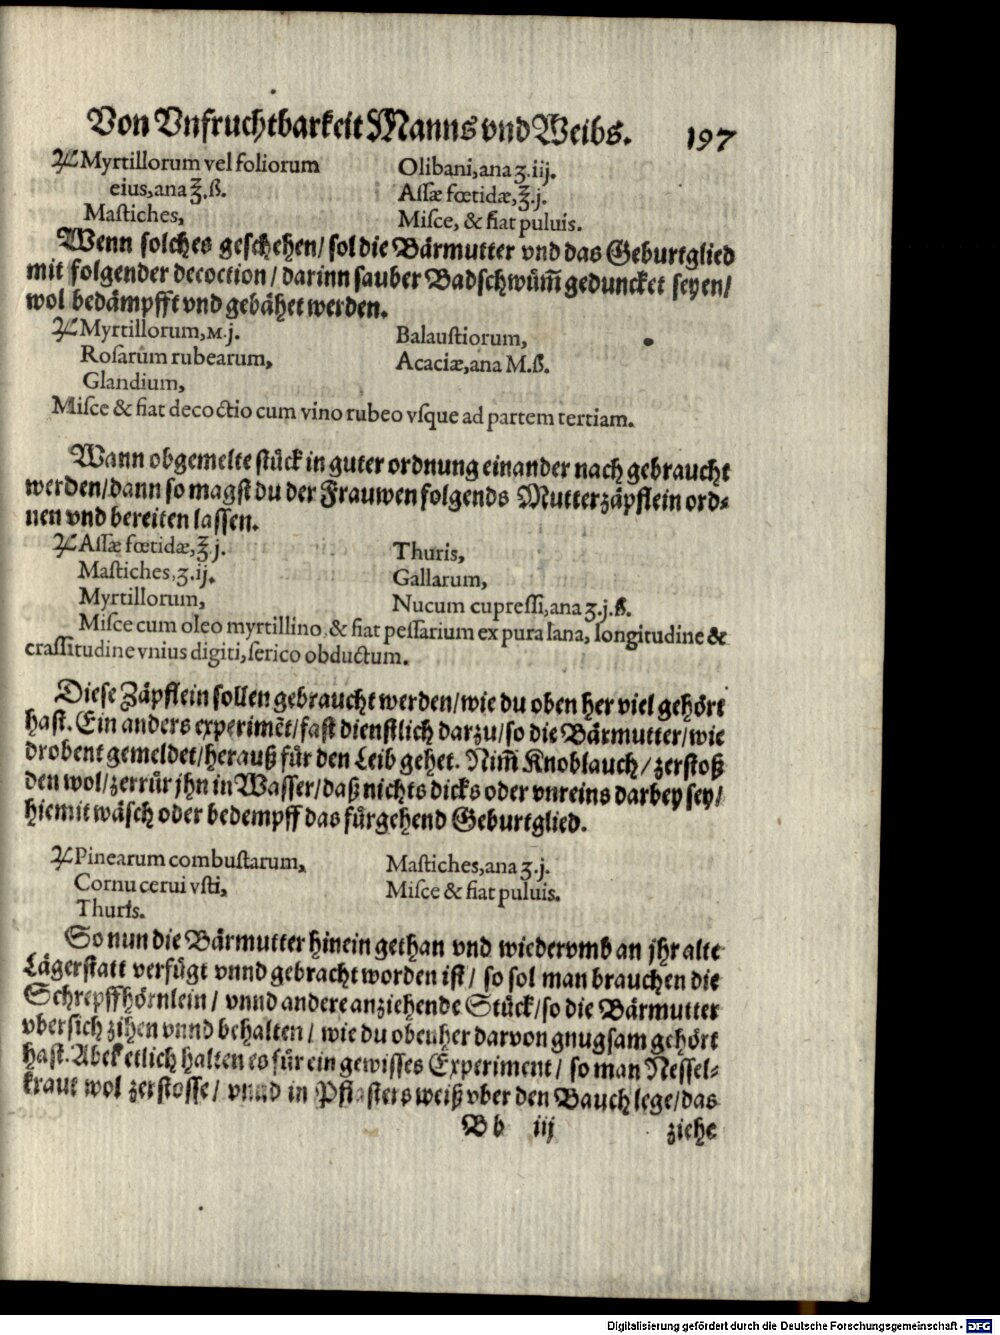 Von Vnfruchtbarkeit Manns vnd Weibs. 197
℞ Myrtillorum vel foliorum
eius, ana ℥.ß.
Mastiches,
Olibani, ana ʒ.iij.
Assæ fœtidæ, ℥.j.
Misce, & fiat puluis.
Wenn solches geschehen/ sol die Bärmutter vnd das Geburtglied
mit folgender decoction/ darinn sauber Badschwům̃ geduncket seyen/
wol bedämpfft vnd gebähet werden.
℞ Myrtillorum, M.j.
Rosarum rubearum,
Glandium,
Balaustiorum,
Acaciæ, ana M.ß.
Misce & fiat decoctio cum vino rubeo vsque ad partem tertiam.
Wann obgemelte stück in guter ordnung einander nach gebraucht
werden/ dann so magst du der Frauwen folgends Mutterzäpflein ord⸗
nen vnd bereiten lassen.
℞ Assæ fœtidæ, ℥.j.
Mastiches, ʒ.ij.
Myrtillorum,
Thuris,
Gallarum,
Nucum cupressi, ana ʒ.j.ß.
Misce cum oleo myrtillino, & fiat pessarium ex pura lana, longitudine &
crassitudine vnius digiti, serico obductum.
Diese Zäpflein sollen gebraucht werden/ wie du oben her viel gehört
hast. Ein anders experimẽt/ fast dienstlich darzu/ so die Bärmutter/ wie
drobent gemeldet/ herauß für den Leib gehet. Nim̃ Knoblauch/ zerstoß
den wol/ zerrür jhn in Wasser/ daß nichts dicks oder vnreins darbey sey/
hiemit wäsch oder bedempff das fürgehend Geburtglied.
℞ Pinearum combustarum,
Cornu cerui vsti,
Thuris.
Mastiches, ana ʒ.j.
Misce & fiat puluis.
So nun die Bärmutter hinein gethan vnd wiedervmb an jhr alte
Lägerstatt verfügt vnnd gebracht worden ist/ so sol man brauchen die
Schrepffhörnlein/ vnnd andere anziehende Stück/ so die Bärmutter
vbersich zihen vnnd behalten/ wie du oben her darvon gnugsam gehört
hast. Aber etlich halten es für ein gewisses Experiment/ so man Nessel⸗
kraut wol zerstosse/ vnnd in Pflastersweiß vber den Bauch lege/ das
B b iij ziehe
Digitalisierung gefördert durch die Deutsche Forschungsgemeinschaft - DFG